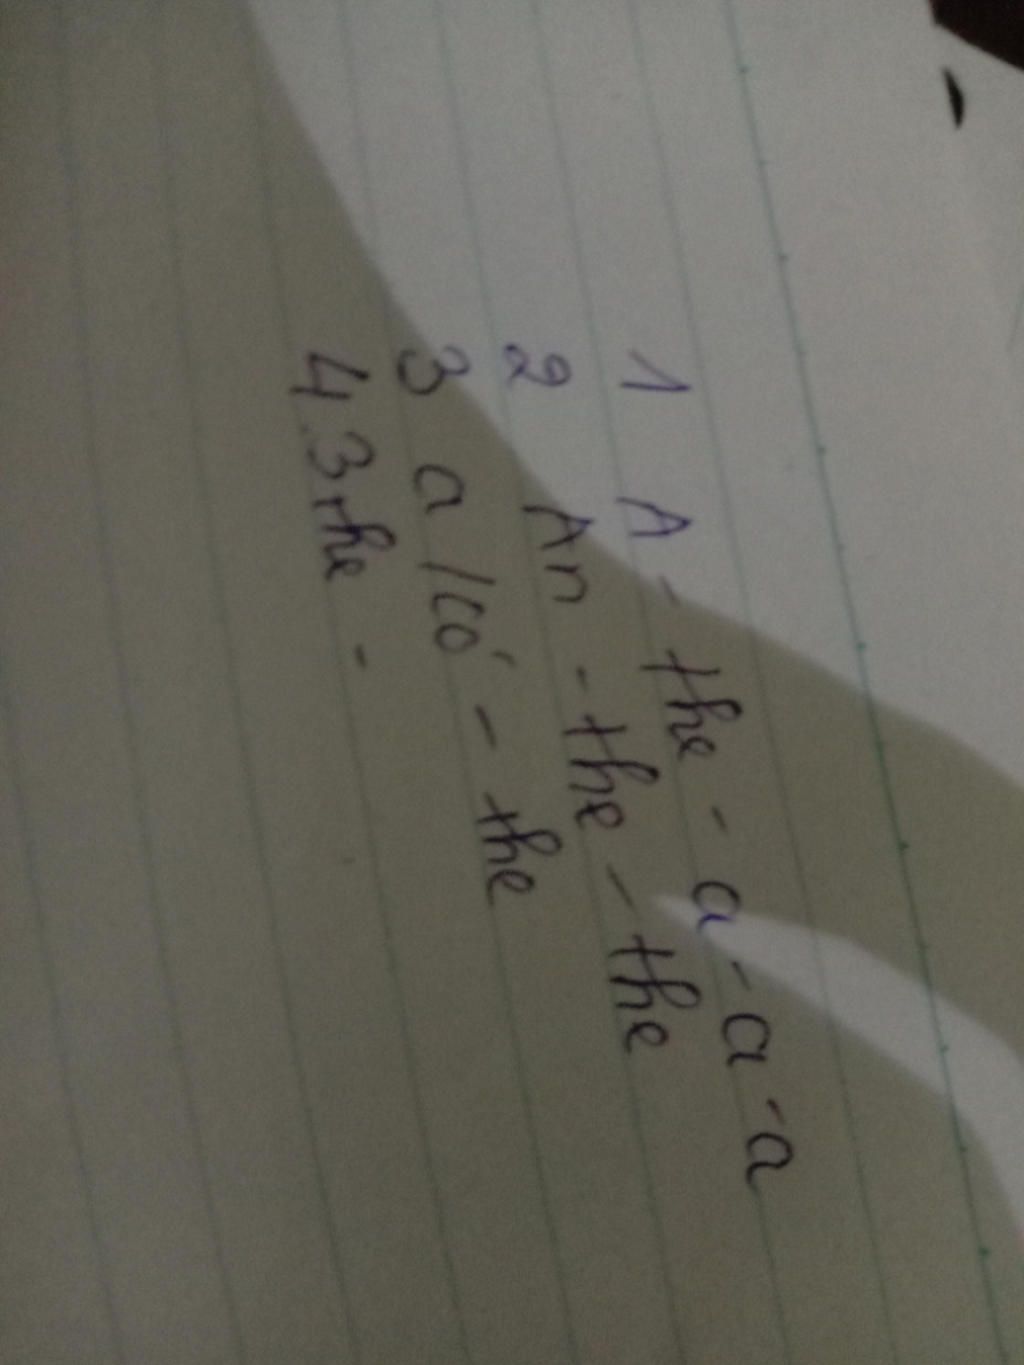 1 A - the - a - a - a
2 An - the - the
3 a /co' - the
4 3 the -